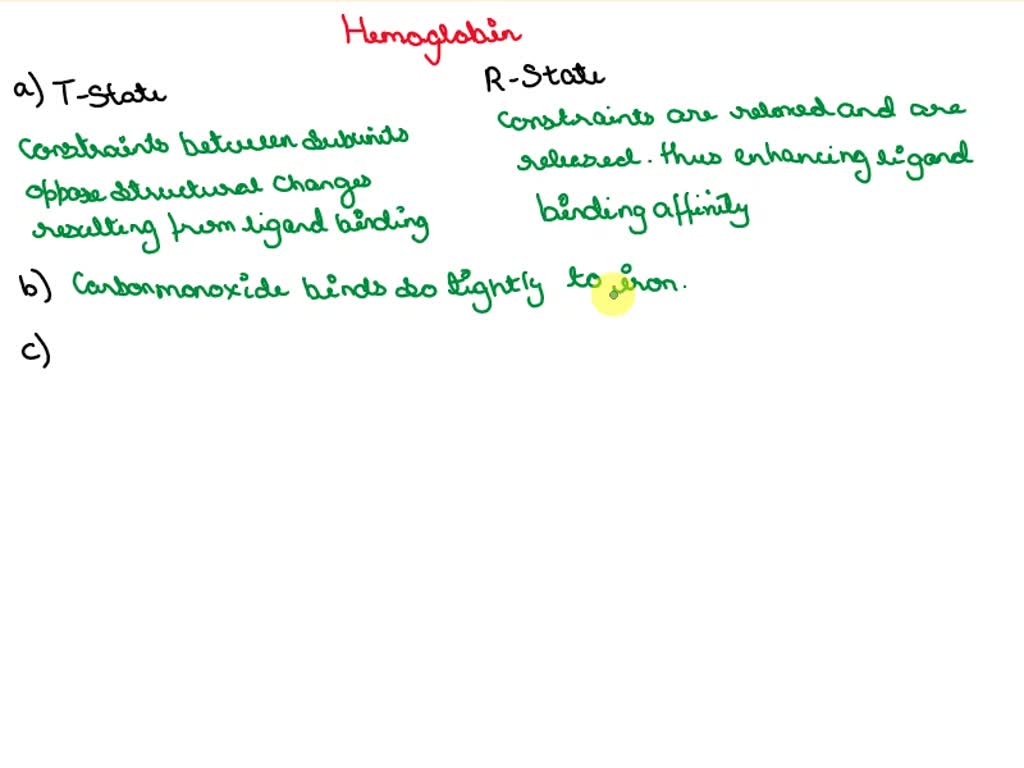 Hemoglobin
a) T-State
Constraints between subunits
oppose structural changes
resulting from ligand binding
R-State
Constraints are reloxed and are
released. thus enhancing ligand
binding affinity
b) Carbonmonoxide binds so tightly to iron.
c)